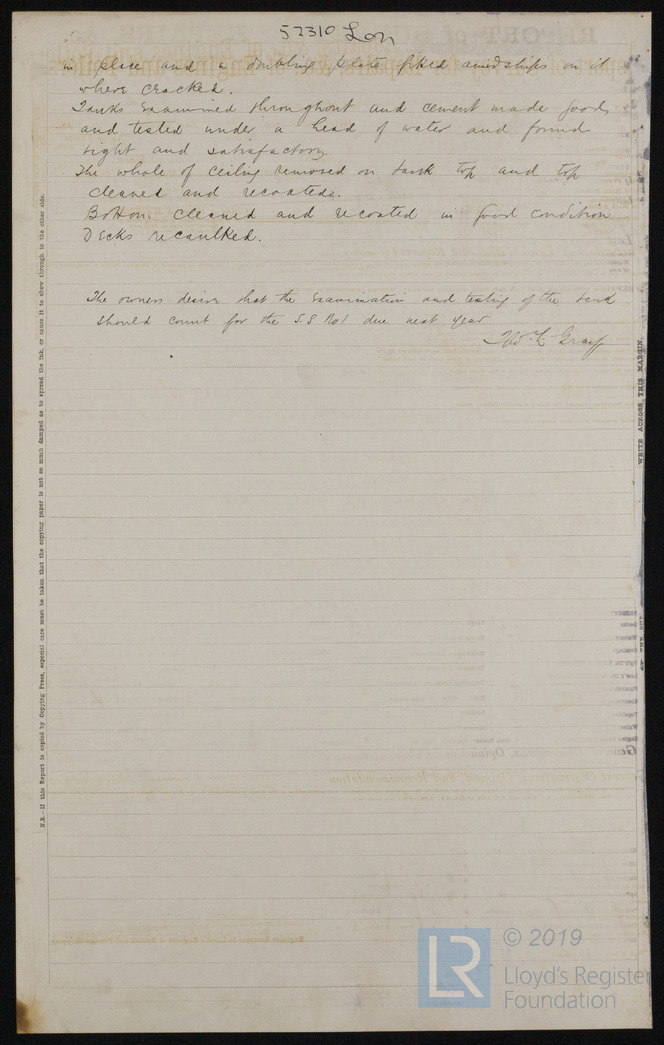 57310 Lon
in place and a doubling plate fitted amidships on it
where cracked.
Tanks examined throughout and cement made good
and tested under a head of water and found
tight and satisfactory.
The whole of ceiling removed on tank top and top
cleaned and recoated.
Bottom cleaned and recoated in good condition
Decks recaulked.
The owners desire that the examination and testing of the tank
should count for the S.S No1 due next year
Gray
N.B.—If this Report is copied by Copying Press, especial care must be taken that the copying paper is not so much damped as to spread the ink, or cause it to show through to the other side.
WRITE ACROSS THIS MARGIN.
LR
© 2019
Lloyd's Register
Foundation